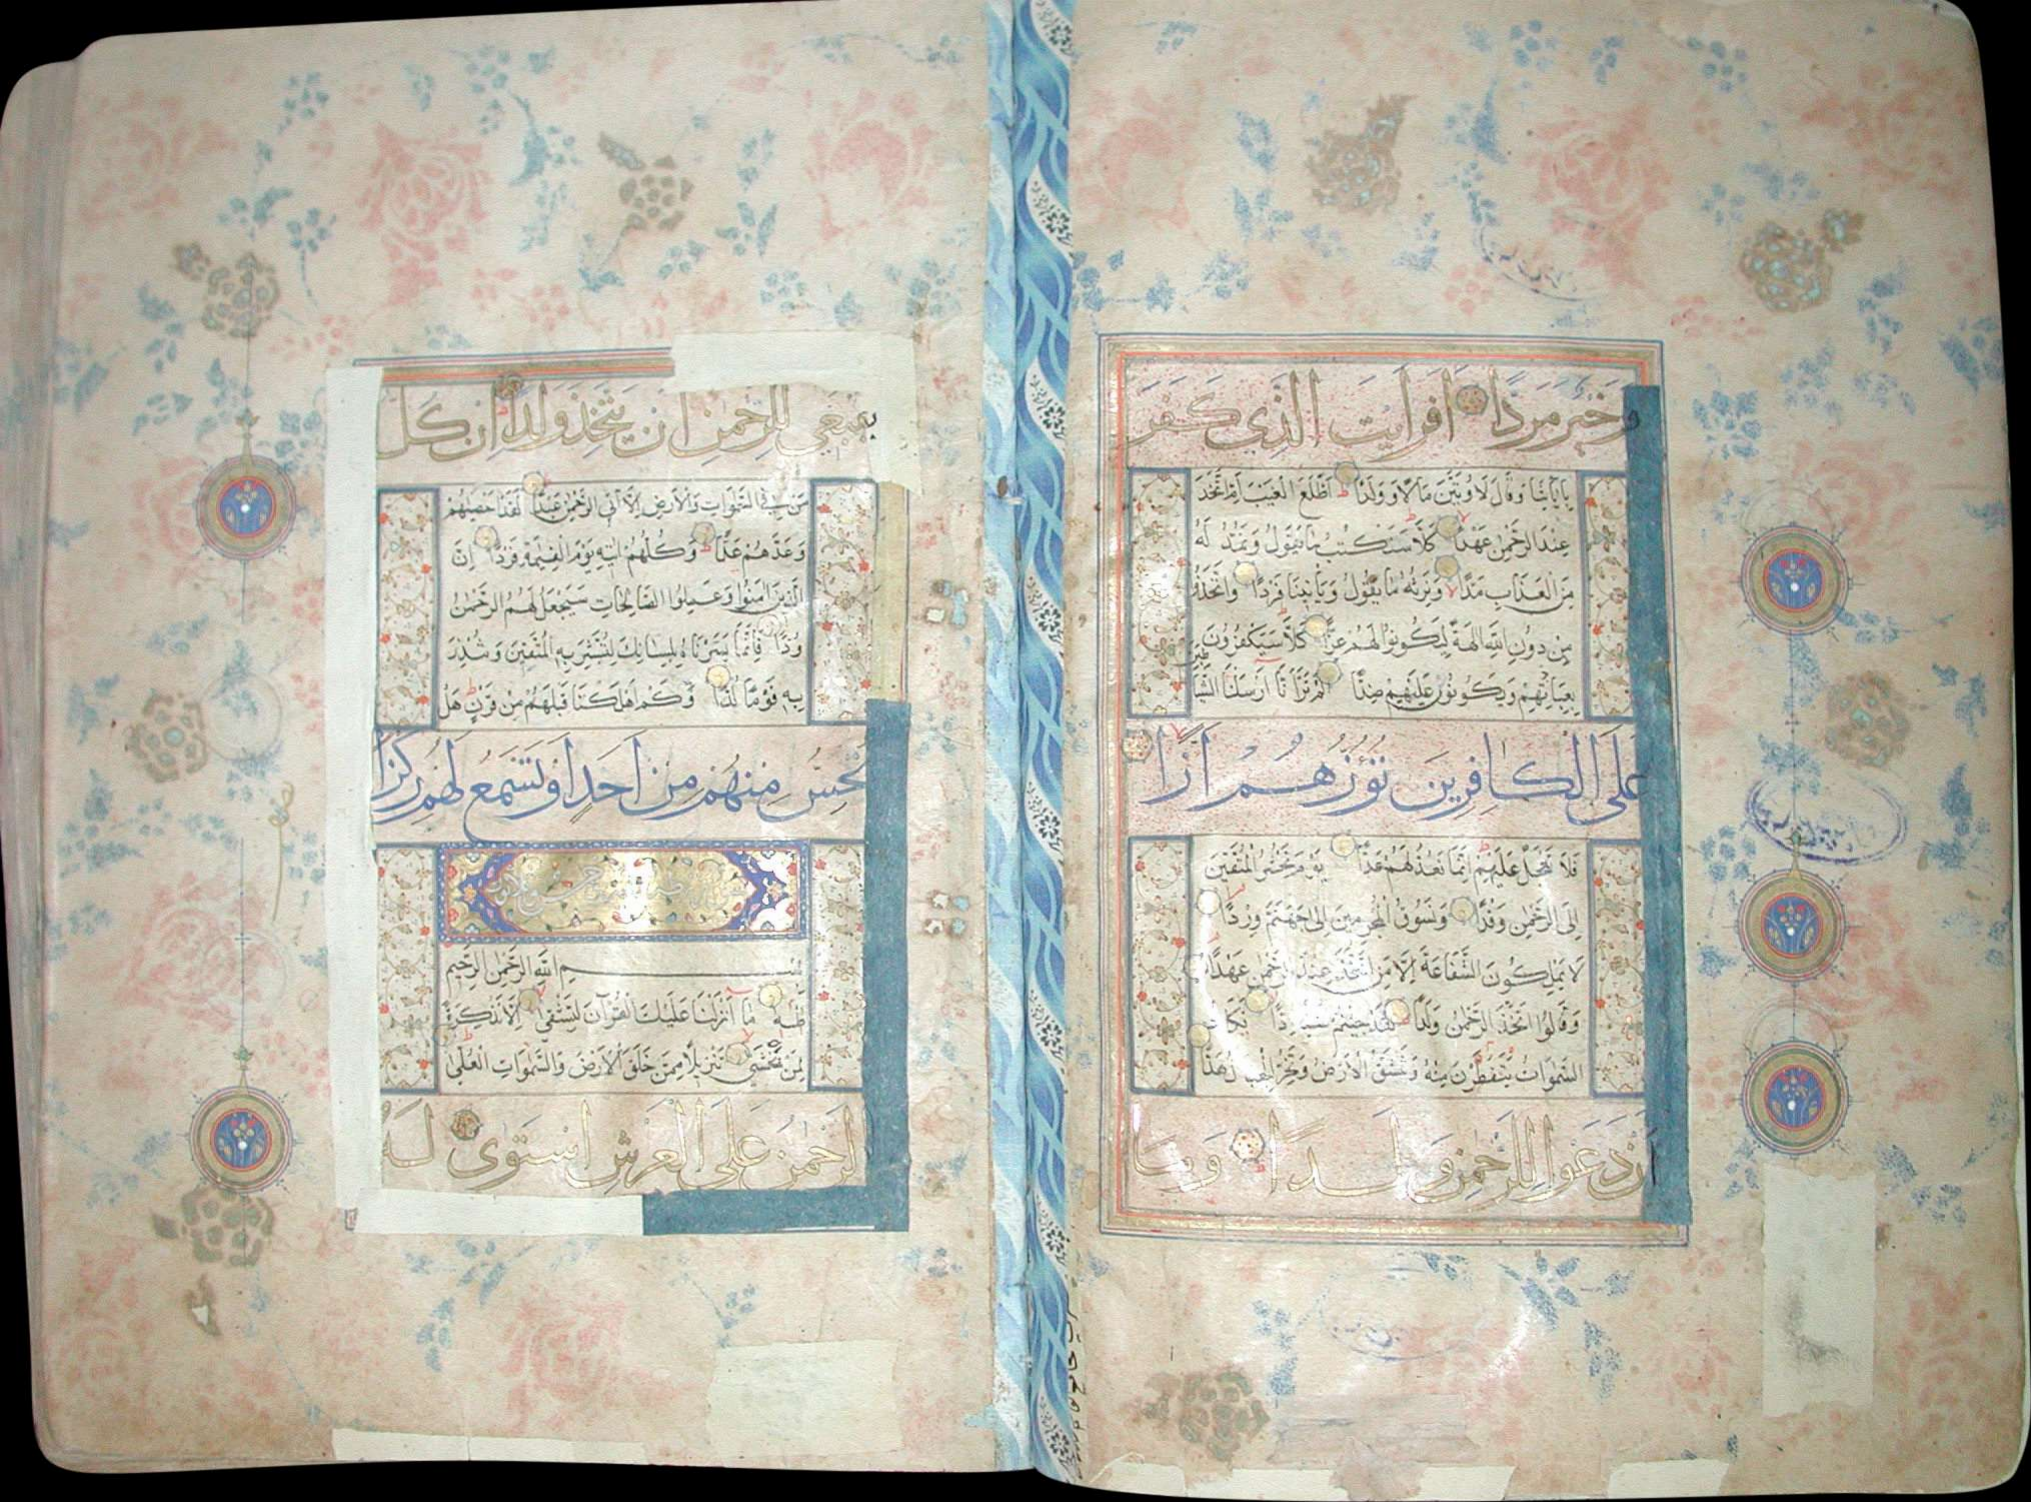 وَخَيْرٌ مَرَدًّا اَفَرَاَيْتَ الَّذِي كَفَرَ
بِاٰيَاتِنَا وَقَالَ لَاُوتَيَنَّ مَالًا وَوَلَدًا اَطَّلَعَ الْغَيْبَ اَمِ اتَّخَذَ
عِنْدَ الرَّحْمٰنِ عَهْدًا كَلَّا سَنَكْتُبُ مَا يَقُولُ وَنَمُدُّ لَهُ
مِنَ الْعَذَابِ مَدًّا وَنَرِثُهُ مَا يَقُولُ وَيَأْتِينَا فَرْدًا وَاتَّخَذُوا
مِنْ دُونِ اللّٰهِ اٰلِهَةً لِيَكُونُوا لَهُمْ عِزًّا كَلَّا سَيَكْفُرُونَ
بِعِبَادَتِهِمْ وَيَكُونُونَ عَلَيْهِمْ ضِدًّا اَلَمْ تَرَ اَنَّا اَرْسَلْنَا الشَّيَاطِينَ
عَلَى الْكَافِرِينَ تَؤُزُّهُمْ اَزًّا
فَلَا تَعْجَلْ عَلَيْهِمْ اِنَّمَا نَعُدُّ لَهُمْ عَدًّا يَوْمَ نَحْشُرُ الْمُتَّقِينَ
اِلَى الرَّحْمٰنِ وَفْدًا وَنَسُوقُ الْمُجْرِمِينَ اِلَى جَهَنَّمَ وِرْدًا
لَا يَمْلِكُونَ الشَّفَاعَةَ اِلَّا مَنِ اتَّخَذَ عِنْدَ الرَّحْمٰنِ عَهْدًا
وَقَالُوا اتَّخَذَ الرَّحْمٰنُ وَلَدًا لَقَدْ جِئْتُمْ شَيْئًا اِدًّا تَكَادُ
السَّمٰوَاتُ يَتَفَطَّرْنَ مِنْهُ وَتَنْشَقُّ الْاَرْضُ وَتَخِرُّ الْجِبَالُ هَدًّا
اَنْ دَعَوْا لِلرَّحْمٰنِ وَلَدًا وَمَا
يَنْبَغِي لِلرَّحْمٰنِ اَنْ يَتَّخِذَ وَلَدًا اِنْ كُلُّ
مَنْ فِي السَّمٰوَاتِ وَالْاَرْضِ اِلَّا اٰتِي الرَّحْمٰنِ عَبْدًا لَقَدْ اَحْصٰيهُمْ
وَعَدَّهُمْ عَدًّا وَكُلُّهُمْ اٰتِيهِ يَوْمَ الْقِيٰمَةِ فَرْدًا اِنَّ
الَّذِينَ اٰمَنُوا وَعَمِلُوا الصَّالِحَاتِ سَيَجْعَلُ لَهُمُ الرَّحْمٰنُ
وُدًّا فَاِنَّمَا يَسَّرْنَاهُ بِلِسَانِكَ لِتُبَشِّرَ بِهِ الْمُتَّقِينَ وَتُنْذِرَ
بِهِ قَوْمًا لُدًّا وَكَمْ اَهْلَكْنَا قَبْلَهُمْ مِنْ قَرْنٍ هَلْ
تُحِسُّ مِنْهُمْ مِنْ اَحَدٍ اَوْ تَسْمَعُ لَهُمْ رِكْزًا
بِسْمِ اللّٰهِ الرَّحْمٰنِ الرَّحِيمِ
طٰهٰ مَا اَنْزَلْنَا عَلَيْكَ الْقُرْآنَ لِتَشْقٰى اِلَّا تَذْكِرَةً
لِمَنْ يَخْشٰى تَنْزِيلًا مِمَّنْ خَلَقَ الْاَرْضَ وَالسَّمٰوَاتِ الْعُلٰى
اَلرَّحْمٰنُ عَلَى الْعَرْشِ اسْتَوٰى لَهُ